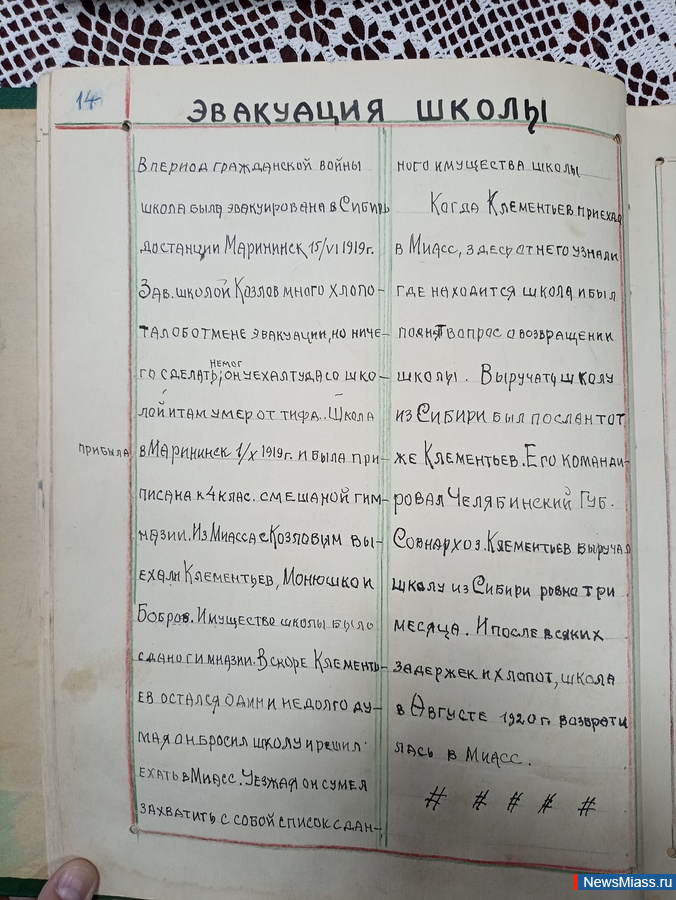 14
ЭВАКУАЦИЯ ШКОЛЫ
В период гражданской войны
школа была эвакуирована в Сибирь
до станции Марининск 15/VI 1919г.
Зав. школой Козлов много хлопо-
тал об отмене эвакуации, но ниче-
го сделать немог; он уехал туда со шко-
лой и там умер от тифа.. Школа
прибыла в Марининск 1/X 1919г. и была при-
писана к 4 клас. смешаной гим-
назии. Из Миасса с Козловым вы-
ехали Клементьев, Монюшко и
Бобров. Имущество школы было
сдано гимназии. Вскоре Клементь-
ев остался один и недолго ду-
мая он бросил школу и решил
ехать в Миасс. Уезжая он сумел
захватить с собой список сдан-
ного имущества школы
Когда Клементьев приехал
в Миасс, здесь от него узнали
где находится школа и был
поднят вопрос о возвращении
школы. Выручать школу
из Сибири был послан тот
же Клементьев. Его команди-
ровал Челябинский Губ.
Совнархоз. Клементьев выручал
школу из Сибири ровно три
месяца. И после всяких
задержек и хлопот, школа
в Августе 1920г. возврати
лась в Миасс.
# # # # #
NewsMiass.ru